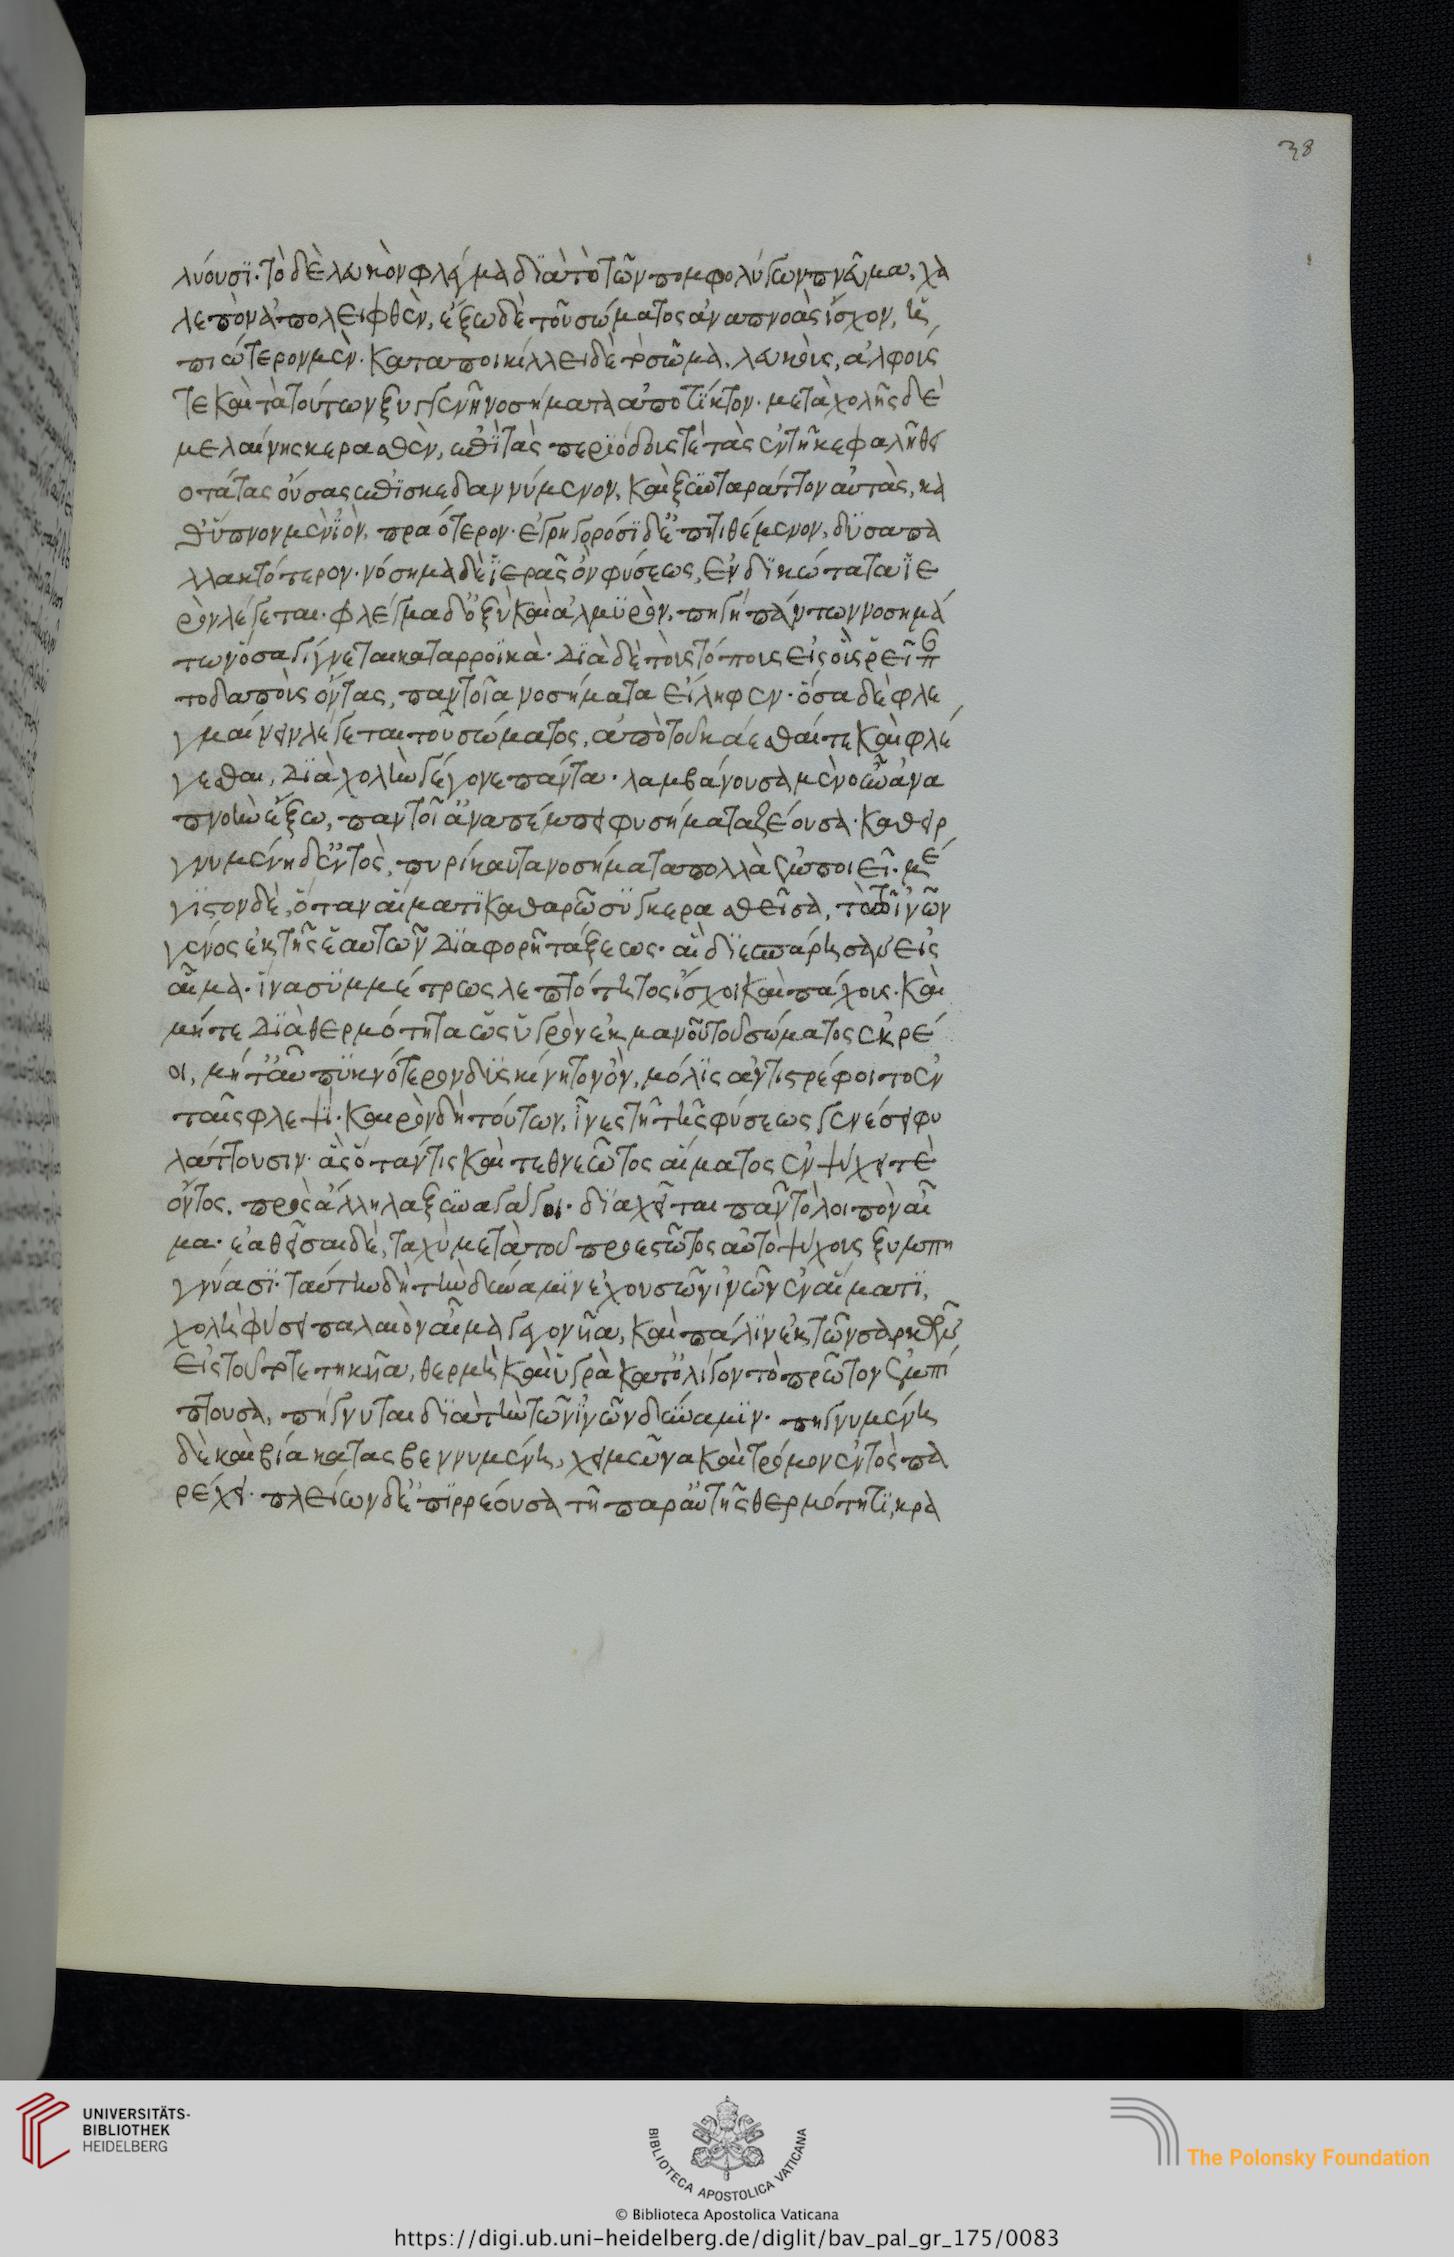 λύουσϊ. τὸ δὲ λευκὸν φλέγμα δϊὰ τὸ τῶν πομφολύγων πνεῦμα, χα
λεπὸν ἀπολειφθὲν, ἔξω δὲ τοῦ σώματος ἀναπνοὰς ἴσχον, ἠ
πιώτερον μὲν. καταποικίλλει δὲ τὸ σῶμα, λευκοὺς, ἀλφοὺς
τε καὶ τὰ τούτων ξυγγενῆ νοσήματα ἀποτίκτον. μετὰ χολῆς δὲ
μελαίνης κερασθὲν, ἐπὶ τὰς περϊόδους τὲ τὰς ἐν τῇ κεφαλῇ θει
οτάτας οὔσας ἐπϊσκεδαννύμενον, καὶ ξυνταράττον αὐτὰς, κα
θ᾽ ὕπνον μὲν ἰὸν, πραότερον. ἐγρηγορόσϊ δ᾽ ἐπιτιθέμενον, δϋσαπα
λλακτότερον. νόσημα δὲ ἱερᾶς ὂν φύσεως, ἐνδϊκώτατα ἱε
ρὸν λέγεται. φλέγμα δ᾽ ὀξὺ καὶ ἁλμϋρὸν, πηγὴ πάντων νοσημά
των ὅσα γίγνεται καταρροϊκὰ. δϊὰ δὲ τοὺς τόπους εἰς οὓς ῥεῖ π
τοδαποὺς ὄντας, παντοῖα νοσήματα εἴληφεν. ὅσα δὲ φλε
γμαίνειν λέγεται τοῦ σώματος, ἀπὸ τοῦ κάεσθαί τε καὶ φλέ
γεσθαι, δϊὰ χολὴν γέγονε πάντα. λαμβάνουσα μὲν οὖν ἀνα
πνοὴν ἔξω, παντοῖ᾽ ἀναπέμπει φυσήματα ζέουσα. καθειρ
γνυμένη δ᾽ ἐντὸς, πυρίκαυτα νοσήματα πολλὰ ἐμποιεῖ. μέ
γϊστον δὲ, ὅταν αἵματϊ καθαρῷ συγκερασθεῖσα, τὸ τῶν ἰνῶν
γένος ἐκ τῆς ἑαυτῶν δϊαφορῇ τάξεως. αἳ δϊεσπάρησαν εἰς
αἷμα. ἵνα συμμέτρως λεπτότητος ἴσχοι καὶ πάχους. καὶ
μήτε δϊὰ θερμότητα ὡς ὑγρὸν ἐκ μανοῦ τοῦ σώματος ἐκρέ
οι, μήτ᾽ αὖ πϋκνότερον δϋσκίνητον ὂν, μόλϊς ἀντϊστρέφοιτο ἐν
ταῖς φλεψϊ. καιρὸν δὴ τούτων, ἶνες τῇ τῆς φύσεως γενέσει φυ
λάττουσιν. ἃς ὅταν τις καὶ τεθνεῶτος αἵματος ἐν ψύχει τὲ
ὄντος, πρὸς ἀλλήλας ξυναγάγοι. δϊαχεῖται πᾶν τὸ λοιπὸν αἷ
μα. ἐαθεῖσαι δὲ, ταχὺ μετὰ τοῦ προεστῶτος αὐτὸ ψύχους ξυμπη
γνύασϊ. ταύτην δὴ τὴν δύναμϊν ἐχουσῶν ἰνῶν ἐν αἵματϊ,
χολὴ φύσει παλαιὸν αἷμα γεγονυῖα, καὶ πάλϊν ἐκ τῶν σαρκῶν
εἰς τοῦτο τετηκυῖα, θερμὴ καὶ ὑγρὰ κατ᾽ ὀλίγον τὸ πρῶτον ἐμπί
πτουσα, πήγνυται δϊὰ τὴν τῶν ἰνῶν δύναμϊν. πηγνυμένη
δὲ καὶ βίᾳ κατασβεννυμένη, χειμῶνα καὶ τρόμον ἐντὸς πα
ρέχει. πλείων δ᾽ ἐπϊρρέουσα τῇ παρ᾽ αὐτῆς θερμότητϊ, κρα
38
UNIVERSITÄTS-
BIBLIOTHEK
HEIDELBERG
BIBLIOTECA APOSTOLICA VATICANA
The Polonsky Foundation
© Biblioteca Apostolica Vaticana
https://digi.ub.uni-heidelberg.de/diglit/bav_pal_gr_175/0083